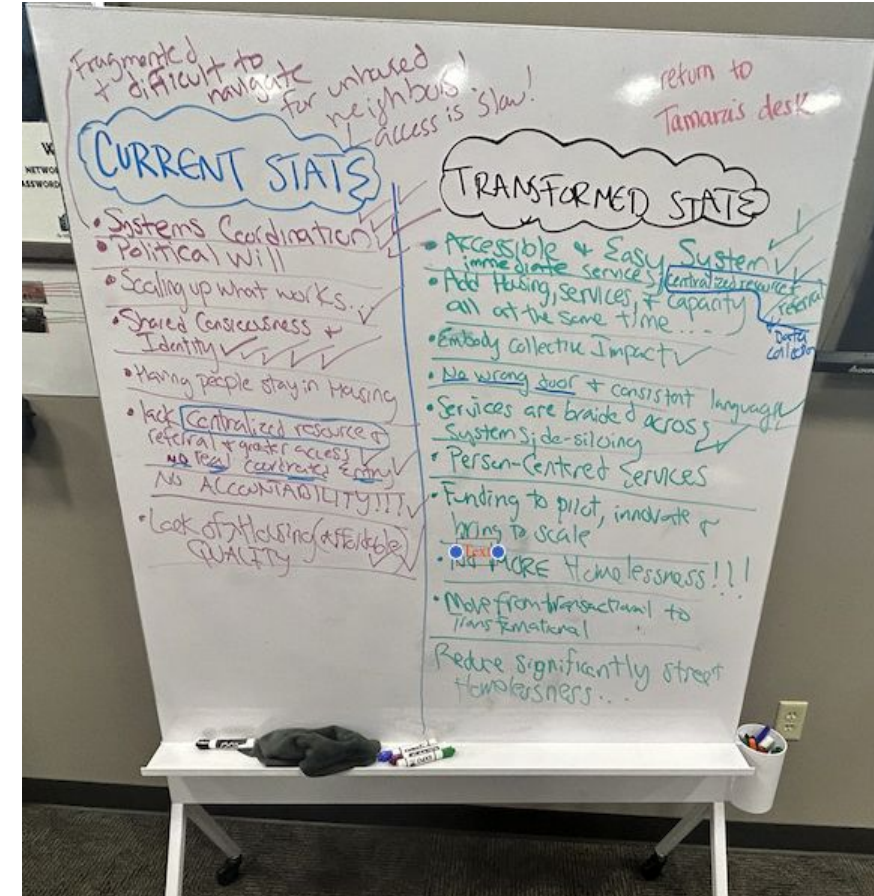 Fragmented
+ difficult to
navigate
for unhased
neighbors!
access is slow!
return to
Tamara's desk
CURRENT STATE
• Systems Coordination
• Political Will
• Scaling up what works...
• Shared Consciousness +
Identity
• Having people stay in Housing
• lack Centralized resource +
referral + greater access
no real coordinated entry
NO ACCOUNTABILITY!!!!
• Lack of Housing (affordable)
QUALITY
TRANSFORMED STATE
• Accessible + Easy System
immediate services, Centralized resource +
referral
• Data
collection
• Add Housing, services, + capacity
all at the same time...
• Embody collective Impact
• No wrong door + consistent language
• Services are braided across
Systems; de-siloing
• Person-Centered Services
• Funding to pilot, innovate +
bring to scale
Text
• NO MORE Homelessness!!!
• Move from transactional to
Transformational
Reduce significantly street
Homelessness...